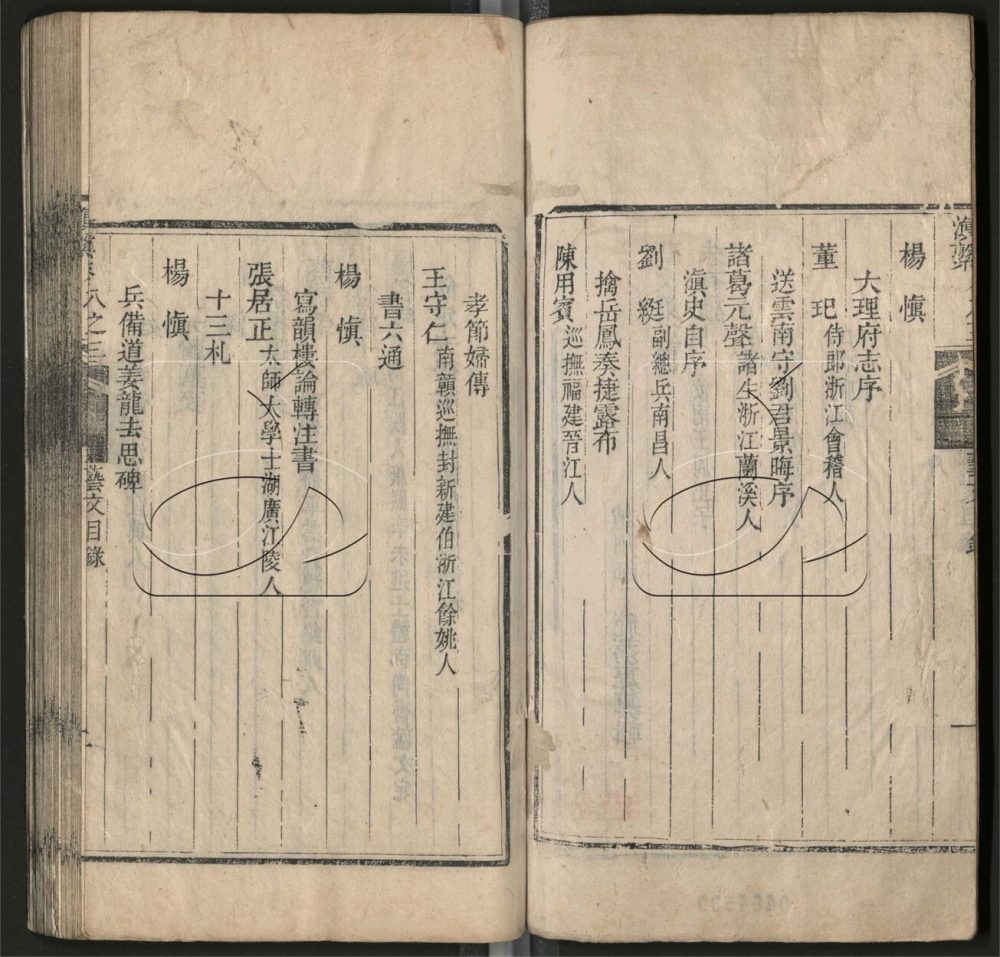 滇繫
楊慎
大理府志序
董玘侍郎浙江會稽人
送雲南守劉君景晦序
諸葛元聲諸生浙江蘭溪人
滇史自序
劉綎副總兵南昌人
擒岳鳳奏捷露布
陳用賓巡撫福建晉江人
孝節婦傳
王守仁南贛巡撫封新建伯浙江餘姚人
書六通
楊慎
寫韻樓論轉注書
張居正太師大學士湖廣江陵人
十三札
楊慎
兵備道姜龍去思碑
八之三
藝文目錄